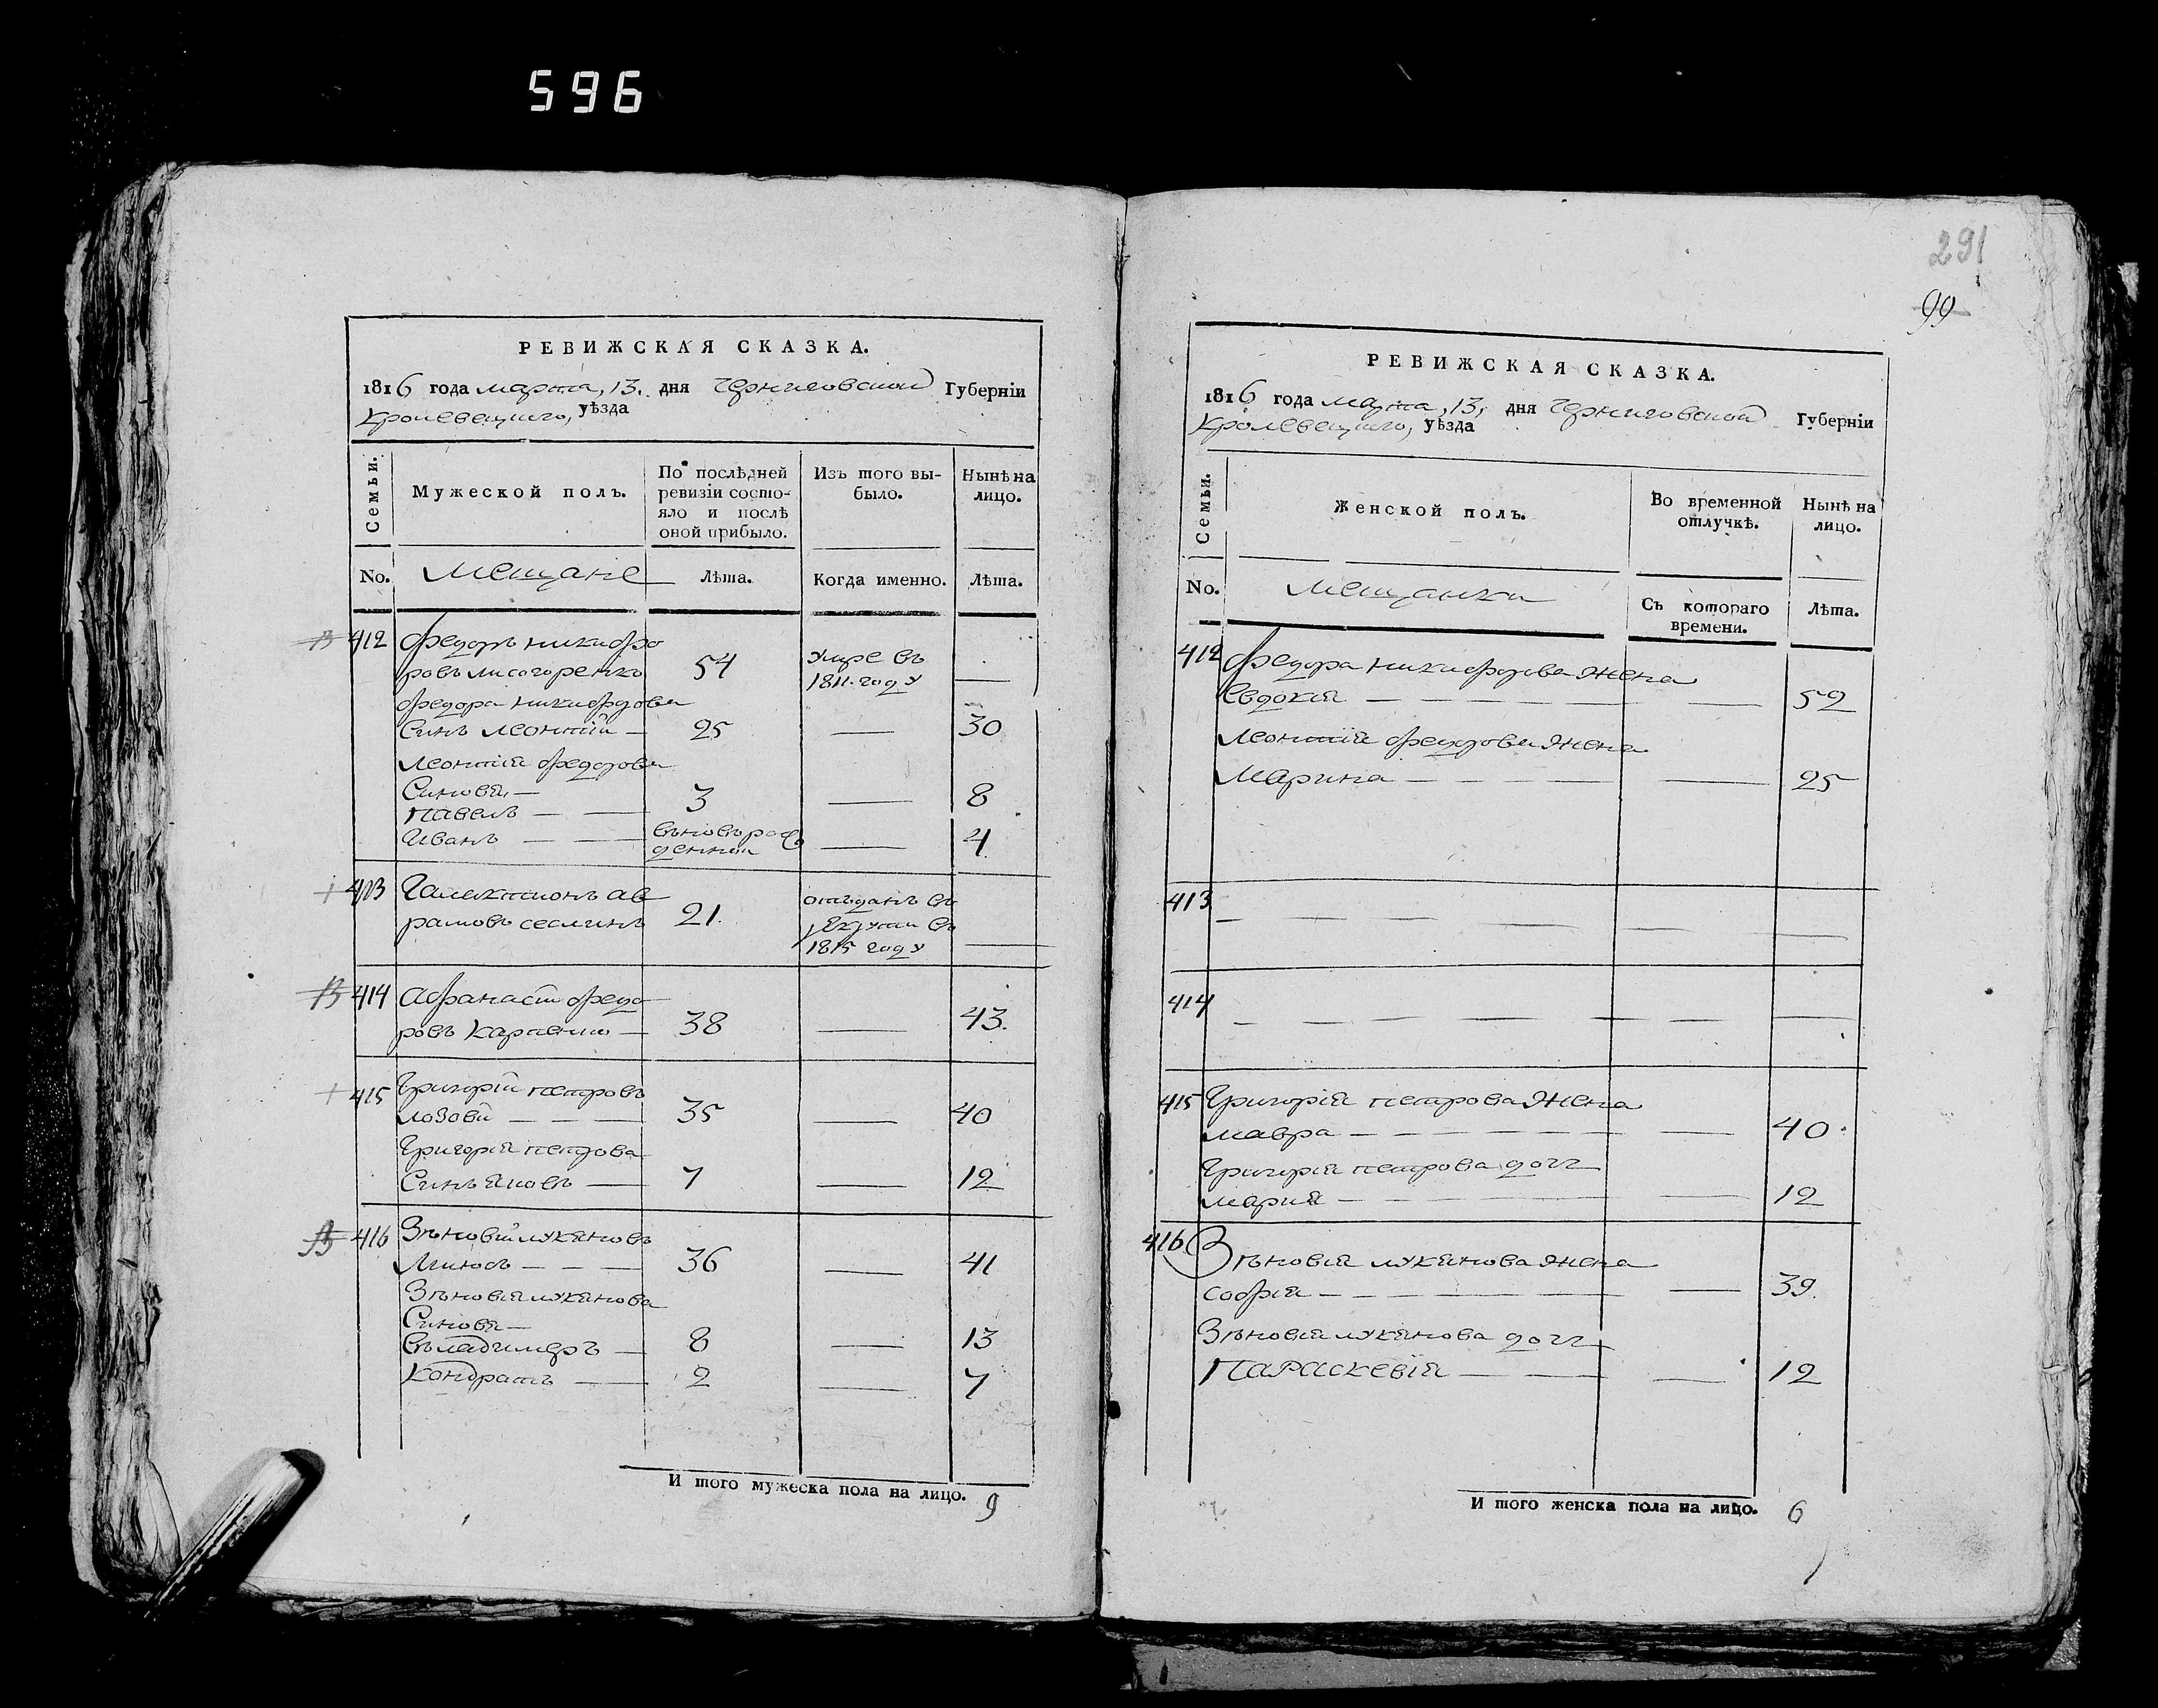 596
РЕВИЖСКАЯ СКАЗКА.
1816 года марта, 13. дня Черниговской Губерніи
Кролевецкого, уѣзда
Семьи.
Мужеской полъ.
По послѣдней
ревизіи состо-
яло и послѣ
оной прибыло.
Изъ того вы-
было.
Нынѣ на
лицо.
No.
Мещане
Лѣта.
Когда именно.
Лѣта.
412 Федоръ никифо
ровъ лисогоренко 54 умре въ
1811. году —
Федора никифорова
синъ леонтій — 25 — 30
леонтія федорова
Синовя, —
павелъ — — 3 — 8
Иванъ — — вънов рож
денной — 4
413 Галактионъ ав
рамовъ 21. отъданъ въ
рекрути въ
1815 году —
414 Афанасій федо
ровъ Карпенко — 38 — 43.
415 Григорій петровъ
лозовій — — — 35 — 40
Григорія петрова
Синъ яковъ — 7 — 12
416 Зѣновій лукяновъ
— — — 36 — 41
Зѣновія лукянова
Синовя —
Въладимеръ — 8 — 13
Кондратъ — 2 — 7
И того мужеска пола на лицо. 9
291
99
РЕВИЖСКАЯ СКАЗКА.
1816 года марта, 13, дня Черниговской Губерніи
Кролевецкого, уѣзда
Семьи.
Женской полъ.
Во временной
отлучкѣ.
Нынѣ на
лицо.
No.
Мещанки
Съ котораго
времени.
Лѣта.
412 Федора никифорова жена
Евдокія — — — — — — 52
леонтія федорова жена
Марина — — — — — 25
413 — — — — — — —
414 — — — — — — —
415 Григорія петрова жена
мавра — — — — — — — 40
Григорія петрова дочь
марія — — — — — — 12
416 Зѣновія лукянова жена
софія — — — — — — 39.
Зѣновія лукянова дочь
Параскевія — — — 12
И того женска пола на лицо. 6